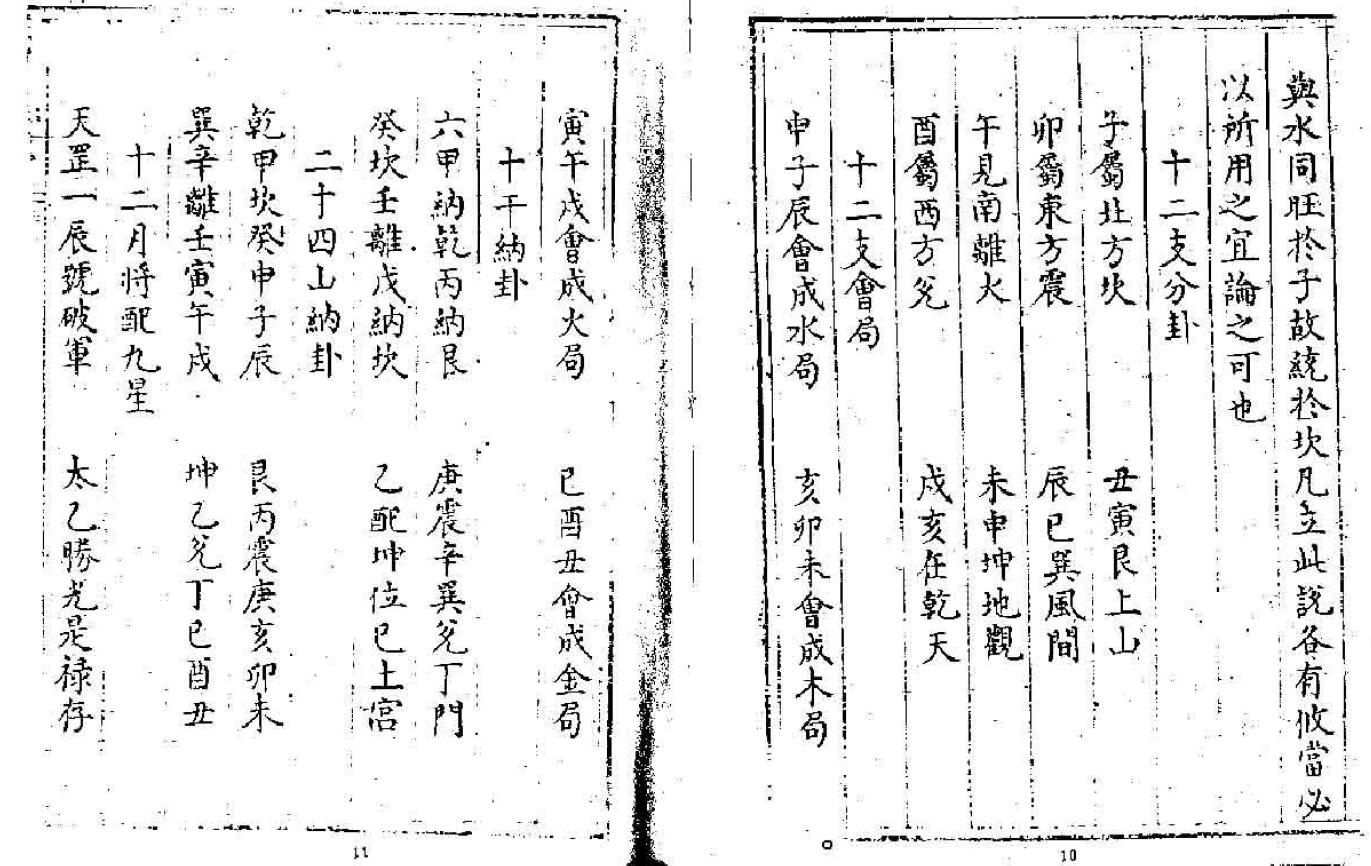 與水同旺於子故統於坎凡立此說各有攸當必
以所用之宜論之可也
十二支分卦
子屬北方坎 丑寅艮上山
卯屬東方震 辰巳巽風間
午見南離火 未申坤地觀
酉屬西方兌 戌亥在乾天
十二支會局
申子辰會成水局 亥卯未會成木局
10
寅午戌會成火局 巳酉丑會成金局
十干納卦
六甲納乾丙納艮 庚震辛巽兌丁門
癸坎壬離戊納坎 乙配坤位巳土宮
二十四山納卦
乾甲坎癸申子辰 艮丙震庚亥卯未
巽辛離壬寅午戌 坤乙兌丁巳酉丑
十二月將配九星
天罡一辰號破軍 太乙勝光是祿存
11